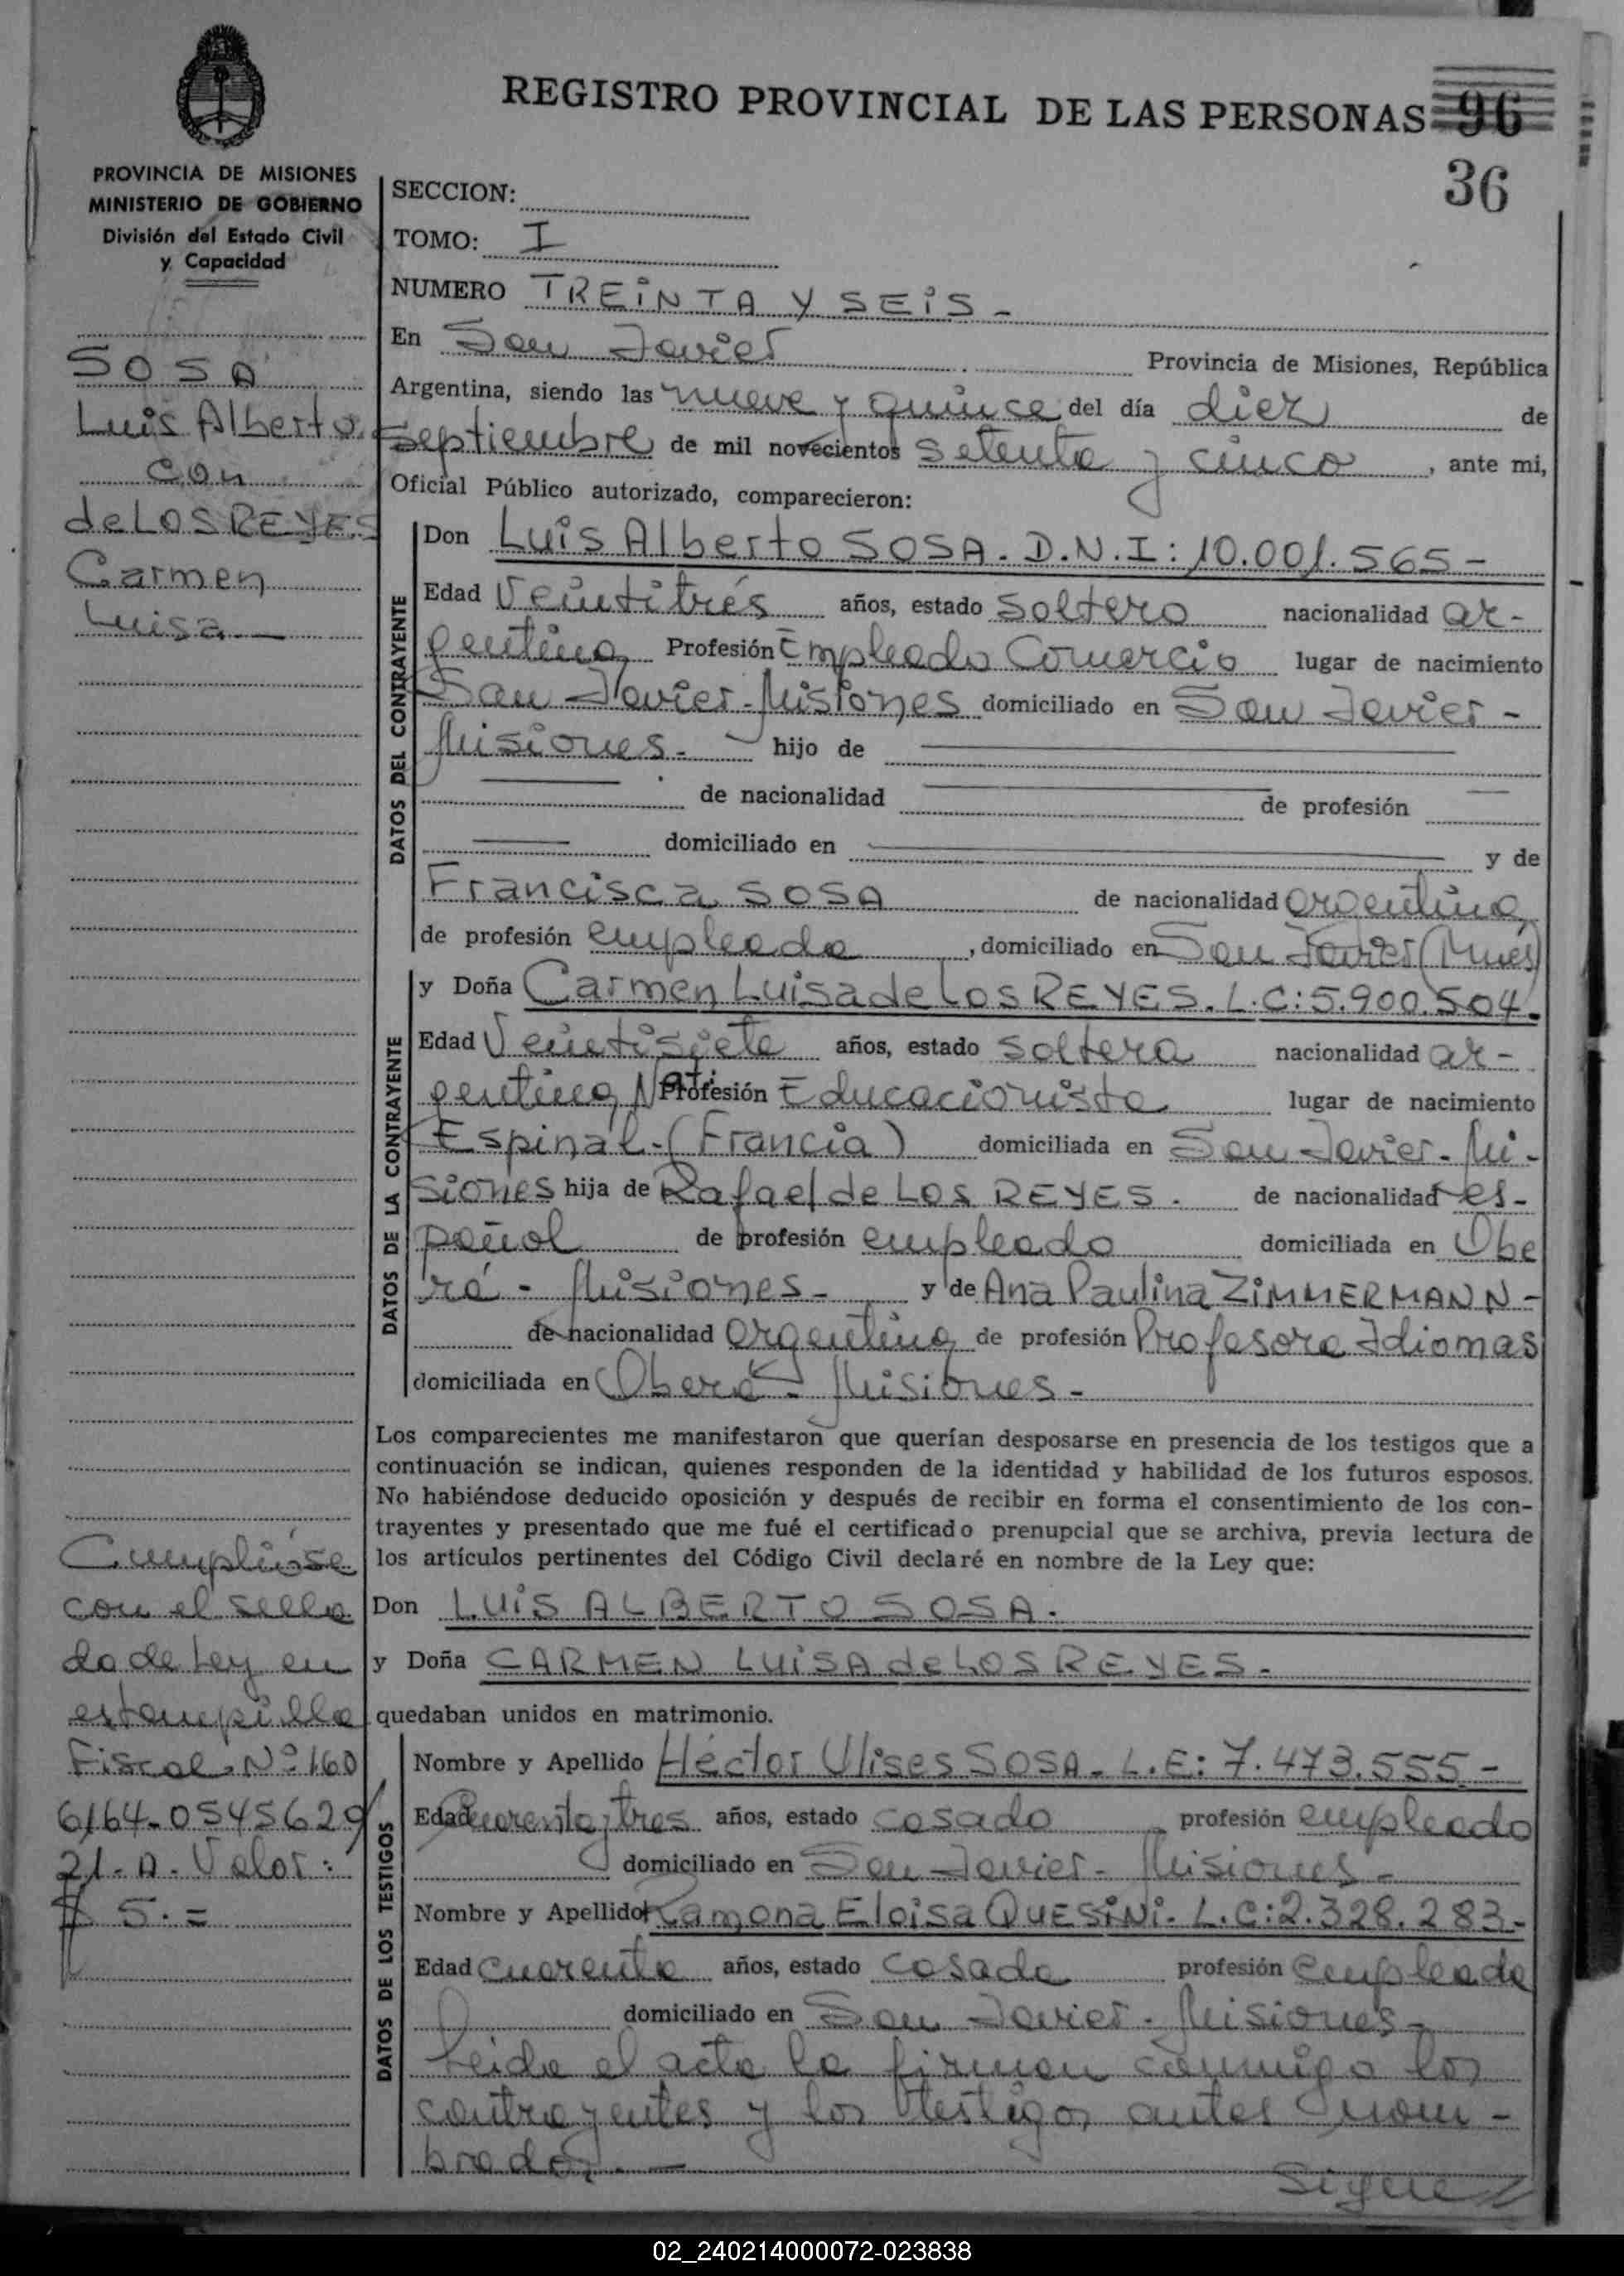 REGISTRO PROVINCIAL DE LAS PERSONAS 96
36
PROVINCIA DE MISIONES
MINISTERIO DE GOBIERNO
División del Estado Civil
y Capacidad
SOSA
Luis Alberto
con
de LOS REYES
Carmen
Luisa
Cumplióse
con el sella
do de Ley en
estampilla
Fiscal Nº 160
6164-0545629/
21-A-Valor:
$ 5.=
SECCION:
TOMO: I
NUMERO TREINTA Y SEIS -
En San Javier Provincia de Misiones, República
Argentina, siendo las nueve y quince del día diez de
septiembre de mil novecientos setenta y cinco, ante mi,
Oficial Público autorizado, comparecieron:
DATOS DEL CONTRAYENTE
Don Luis Alberto SOSA. D.N.I: 10.001.565-
Edad Veintitrés años, estado soltero nacionalidad ar-
gentina Profesión Empleado Comercio lugar de nacimiento
San Javier-Misiones domiciliado en San Javier-
Misiones.- hijo de
de nacionalidad de profesión
domiciliado en y de
Francisca SOSA de nacionalidad argentina,
de profesión empleada, domiciliado en San Javier (Mnes)
DATOS DE LA CONTRAYENTE
y Doña Carmen Luisa de Los REYES. L.C: 5.900.504.
Edad Veintisiete años, estado soltera nacionalidad ar-
gentina Nat. Profesión Educacionista lugar de nacimiento
Espinal-(Francia) domiciliada en San Javier-Mi-
siones hija de Rafael de LOS REYES. de nacionalidad es-
pañol de profesión empleado domiciliada en Obe
rá - Misiones - y de Ana Paulina ZIMMERMANN -
de nacionalidad argentina de profesión Profesora Idiomas
domiciliada en Oberá - Misiones -
Los comparecientes me manifestaron que querían desposarse en presencia de los testigos que a
continuación se indican, quienes responden de la identidad y habilidad de los futuros esposos.
No habiéndose deducido oposición y después de recibir en forma el consentimiento de los con-
trayentes y presentado que me fué el certificado prenupcial que se archiva, previa lectura de
los artículos pertinentes del Código Civil declaré en nombre de la Ley que:
Don LUIS ALBERTO SOSA.
y Doña CARMEN LUISA de LOS REYES.
quedaban unidos en matrimonio.
DATOS DE LOS TESTIGOS
Nombre y Apellido Héctor Ulises SOSA - L.E: 7.473.555 -
Edad Cuarenta y tres años, estado casado profesión empleado
domiciliado en San Javier - Misiones -
Nombre y Apellido Ramona Eloisa QUESINI. L.C: 2.328.283-
Edad cuarenta años, estado casada profesión empleada
domiciliado en San Javier - Misiones -
Leida el acta la firman conmigo los
contrayentes y los testigos antes nom-
brados. -
Sigue
02_240214000072-023838